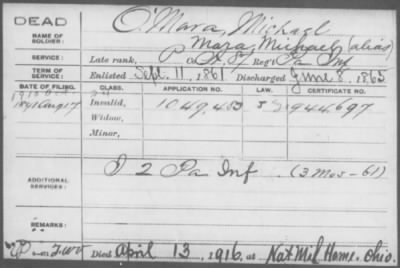 DEAD
O'Mara, Michael
NAME OF SOLDIER:
Mara, Michael (alias)
SERVICE:
Late rank, P Co. Reg't Pa Inf
TERM OF SERVICE:
Enlisted Sept. 11, 1861 Discharged June 8, 1865
DATE OF FILING. CLASS. APPLICATION NO. LAW. CERTIFICATE NO.
1891 Aug 17 Invalid, 1049.483 944.697
Widow,
Minor,
ADDITIONAL SERVICES:
2 Pa Inf (3 Mos - 61)
REMARKS:
Died April 13, 1916, at Nat Mil Home, Ohio.